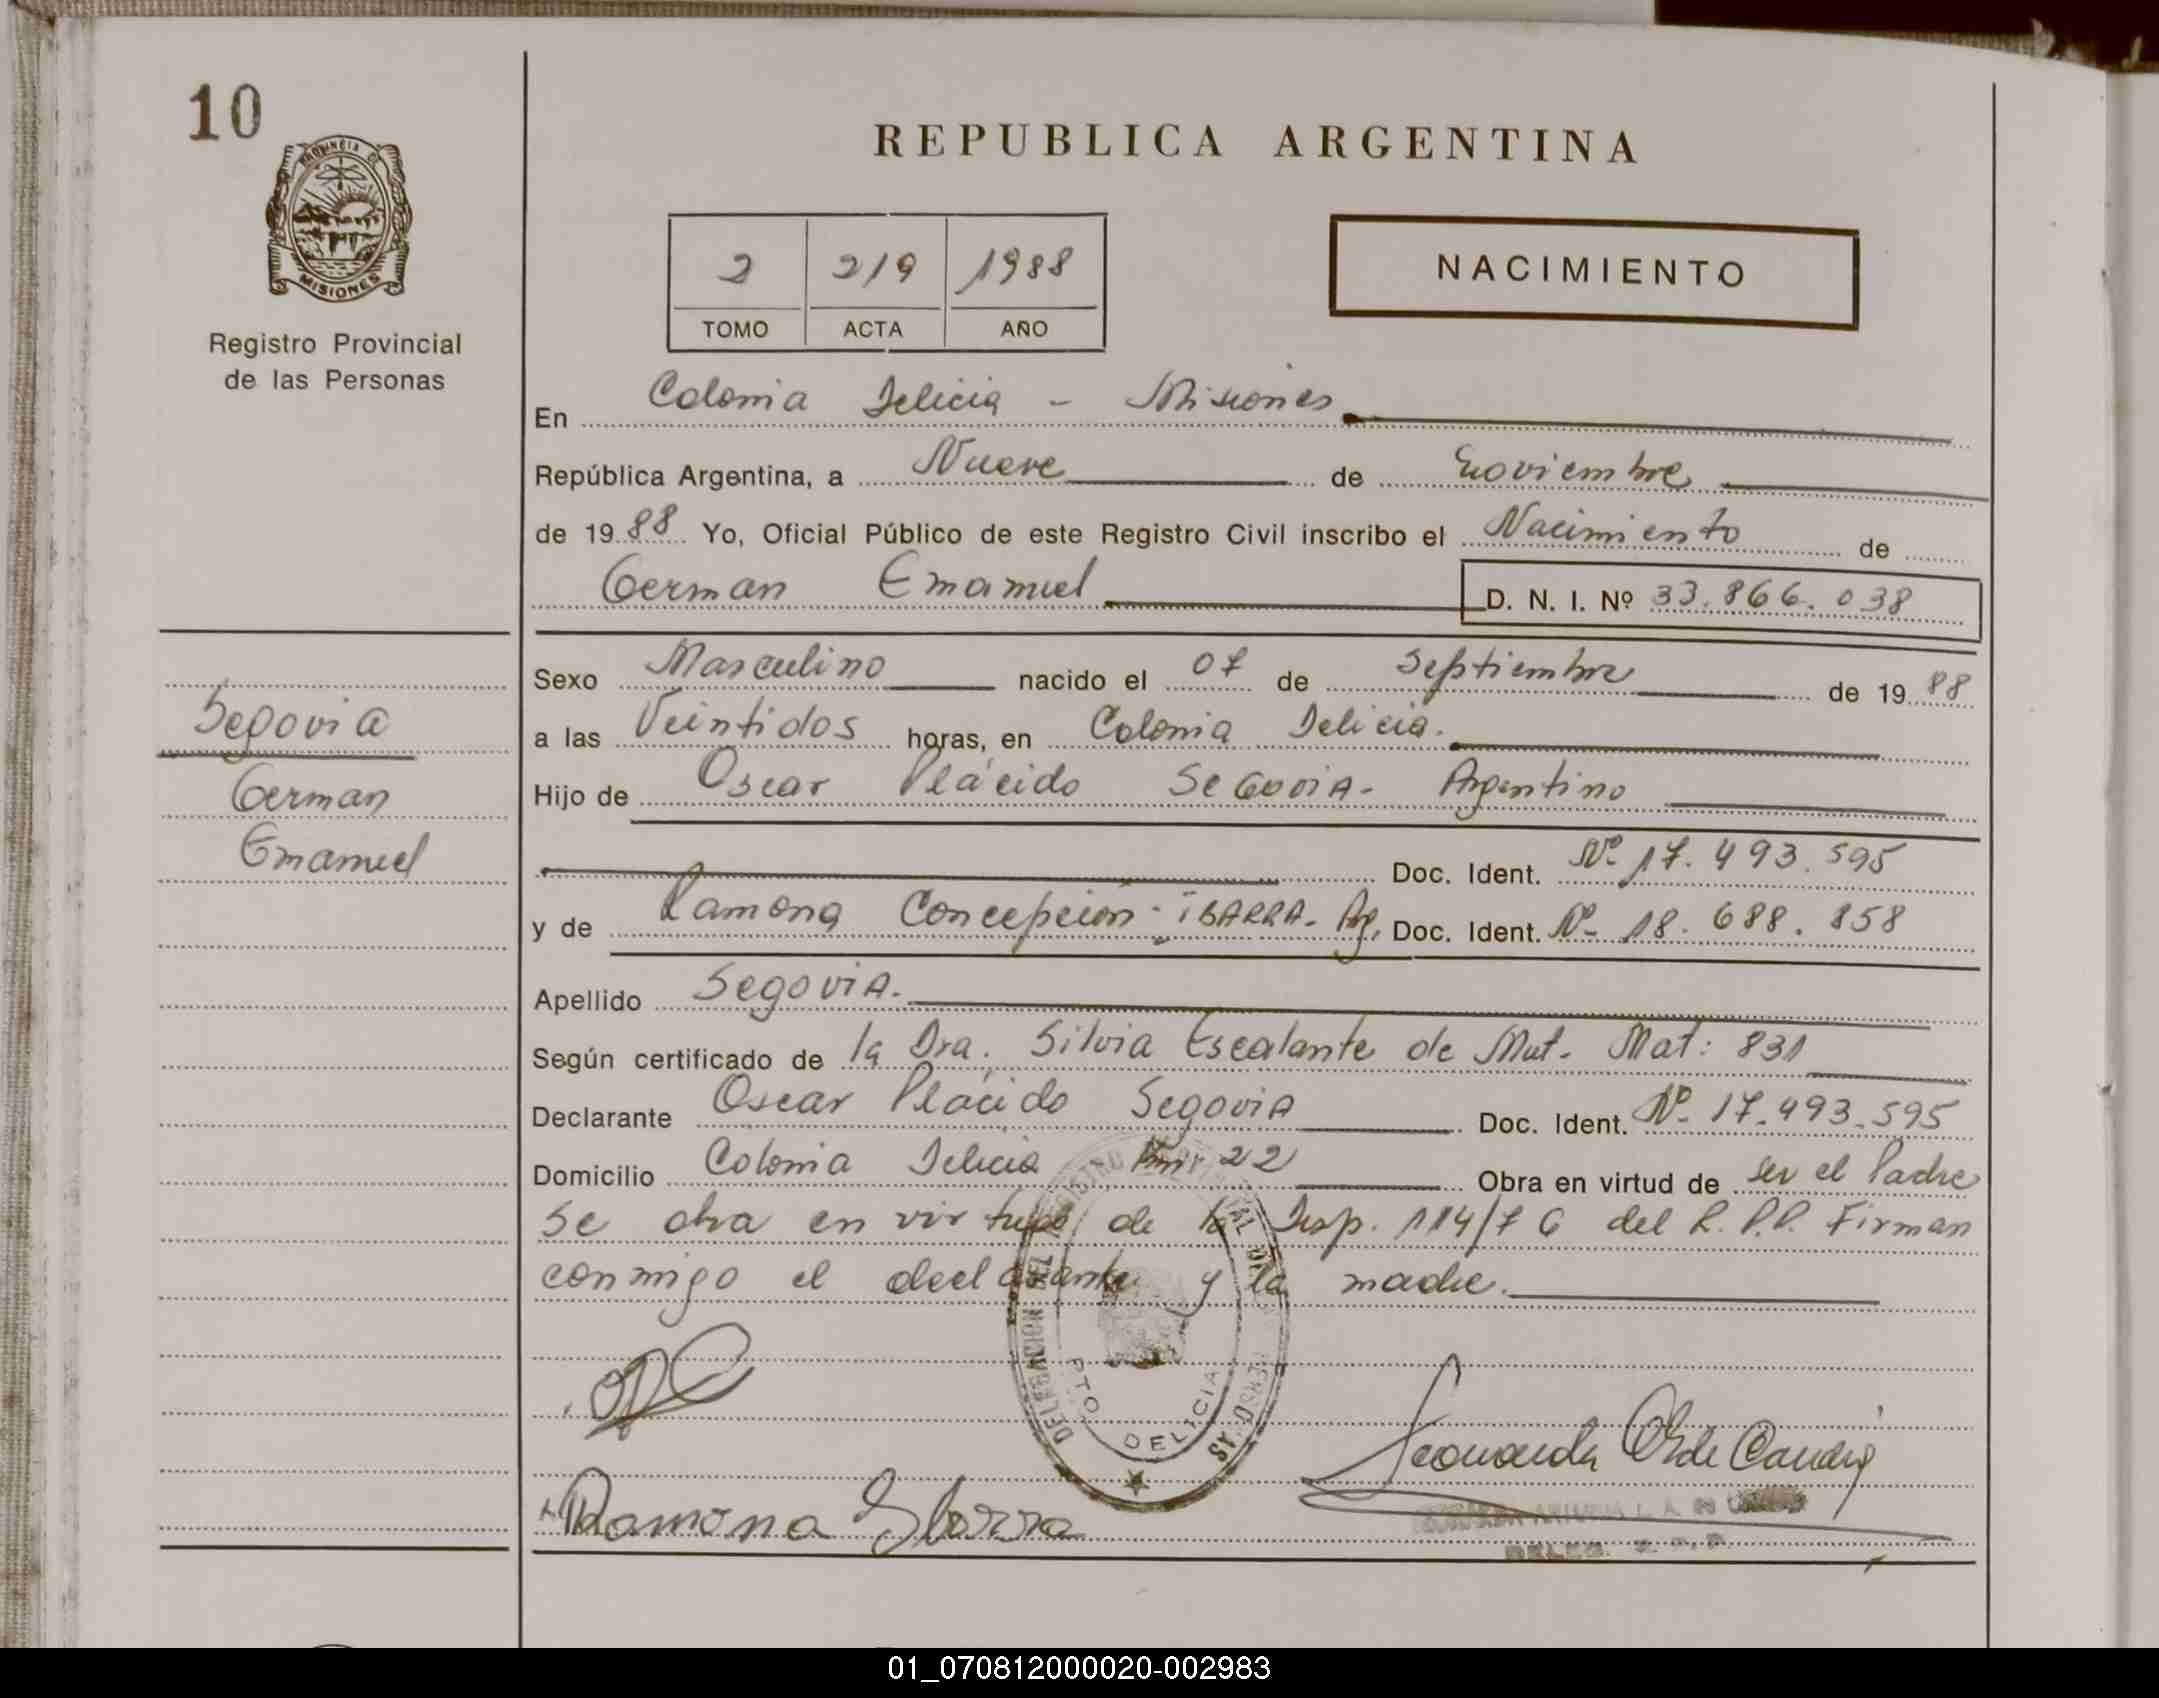 10
PROVINCIA DE
MISIONES
Registro Provincial
de las Personas
REPUBLICA ARGENTINA
2 219 1988
TOMO ACTA AÑO
NACIMIENTO
En Colonia Delicia - Misiones
República Argentina, a Nueve de Noviembre
de 1988 Yo, Oficial Público de este Registro Civil inscribo el Nacimiento de
German Emanuel D. N. I. Nº 33.866.038
Sexo Masculino nacido el 07 de Septiembre de 1988
Segovia
German
Emanuel
a las Veintidos horas, en Colonia Delicia.
Hijo de Oscar Plácido SEGOVIA - Argentino
Doc. Ident. Nº 17.493.595
y de Ramona Concepción - IBARRA - Arg. Doc. Ident. Nº 18.688.858
Apellido Segovia.
Según certificado de la Dra. Silvia Escalante de Mat: 831
Declarante Oscar Plácido Segovia Doc. Ident. Nº 17.493.595
Domicilio Colonia Delicia Km 22 Obra en virtud de ser el Padre
Se obra en virtud de la Disp. 114/76 del R.P.P. Firman
conmigo el declarante y la madre.
PTO. DELICIA
Ramona Ibarra
01_070812000020-002983